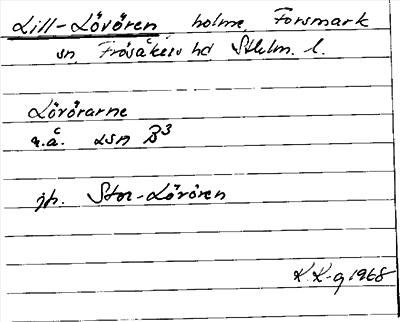 Lill-Lövören, holme, Forsmark
sn, Frösåkers hd Sthlm. l.
Lövörarne
n.å. LSA B3
jfr. Stor-Lövören
K.K-g 1968